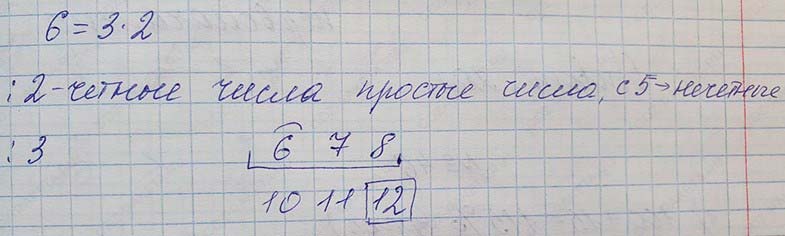 6 = 3 · 2
: 2 - четные числа простые числа, с 5 → нечетные
: 3 6 7 8
10 11 12